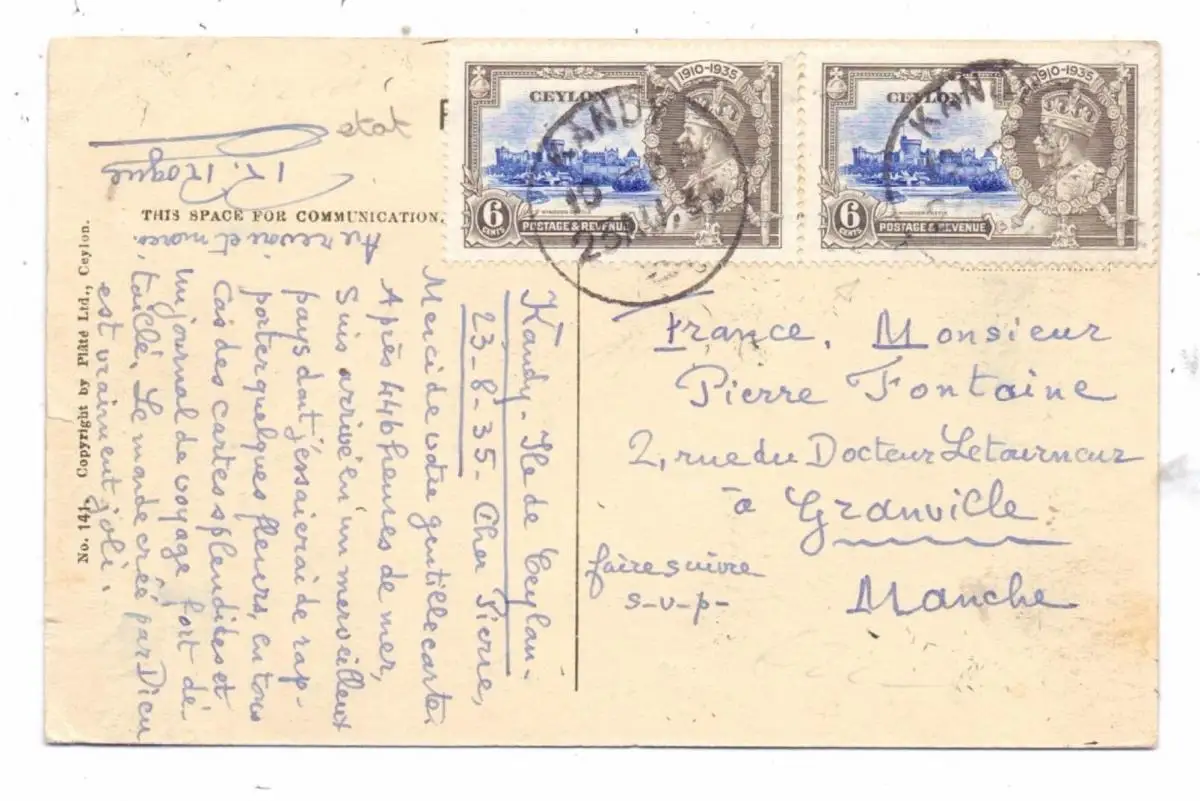 CEYLON
1910-1935
WINDSOR CASTLE
6
CENTS
POSTAGE & REVENUE
CEYLON
1910-1935
WINDSOR CASTLE
6
CENTS
POSTAGE & REVENUE
KANDY
10
23 AU. 35
KANDY
etat
THIS SPACE FOR COMMUNICATION.
No. 141. Copyright by Plâté Ltd., Ceylon.
Kandy - Ile de Ceylan -
23-8-35 - Cher Pierre,
Merci de votre gentille carte.
Après 446 heures de mer,
Suis arrivé en un merveilleux
pays dont j'essaierai de rap-
porter quelques fleurs, en tous
Cas des cartes splendides et
un journal de voyage fort dé-
taillé. Le monde créé par Dieu
est vraiment joli.
Au revoir et
Rogue
France, Monsieur
Pierre Fontaine
2, rue du Docteur Letourneur
à Granville
Manche
faire suivre
s-v-p-